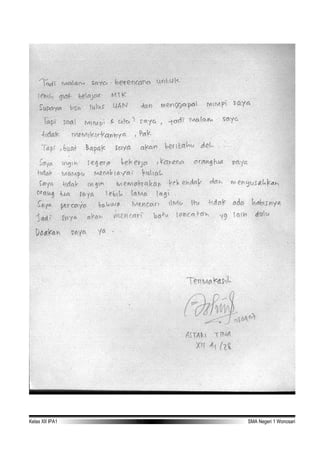 Tadi malam saya berencana untuk
lebih giat belajar MTK
Supaya bisa lulus UAN dan menggapai mimpi saya
Tapi soal mimpi & cita² saya, tadi malam saya
tidak memikirkannya, Pak.
Tapi, buat Bapak saya akan beritahu deh...
Saya ingin segera bekerja, karena orangtua saya
tidak mampu membiayai kuliah
Saya tidak ingin memaksakan kehendak dan menyusahkan
orang tua saya lebih lama lagi
Saya percaya bahwa mencari ilmu itu tidak ada batasnya
Jadi saya akan mencari batu loncatan yg lain dulu
Doakan saya ya.
Terimakasih
XII A1/28
Kelas XII IPA1 SMA Negeri 1 Wonosari